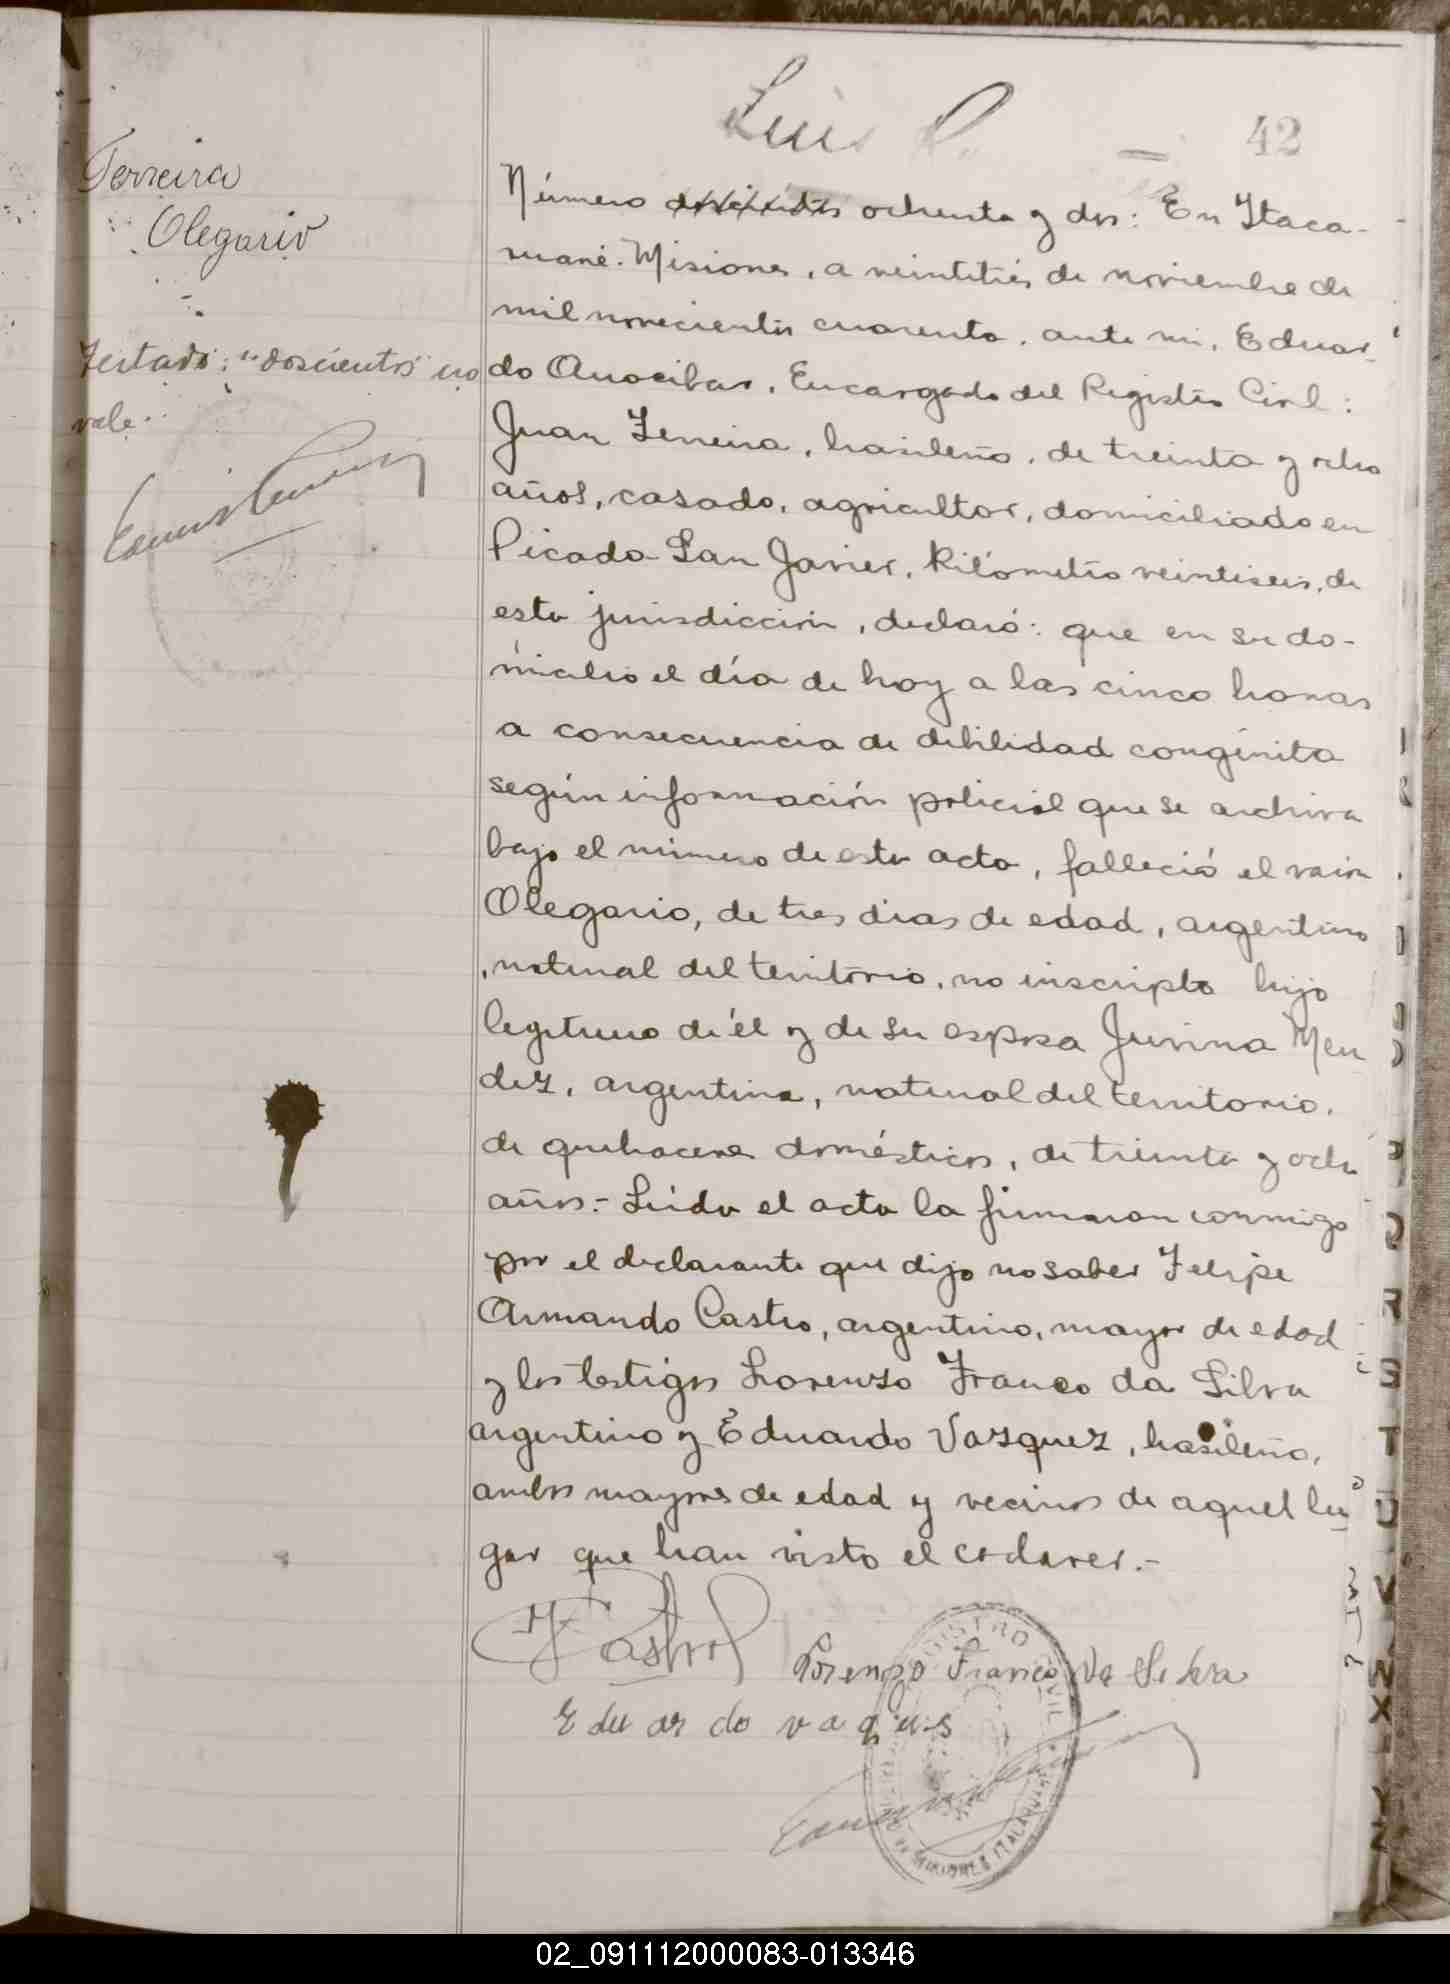 Luis P.
42
Ferreira
Olegario
Testado: "doscientos" no
vale.
Número doscientos ochenta y dos: En Itaca-
ruaré. Misiones, a veintitrés de noviembre de
mil novecientos cuarenta, ante mi, Eduar-
do Anocibar, Encargado del Registro Civil:
Juan Ferreira, brasileño, de treinta y ocho
años, casado, agricultor, domiciliado en
Picada San Javier, Kilómetro veintiseis, de
esta jurisdicción, declaró: que en su do-
micilio el día de hoy a las cinco horas
a consecuencia de debilidad congénita
según información policial que se archiva
bajo el número de esta acta, falleció el varón
Olegario, de tres dias de edad, argentino
, natural del territorio, no inscripto hijo
legitimo de él y de su esposa Juvina Men
dez, argentina, natural del territorio,
de quehaceres domésticos, de treinta y ocho
años.- Leída el acta la firmaron conmigo
por el declarante que dijo no saber Felipe
Armando Castro, argentino, mayor de edad
y los testigos Lorenzo Franco da Silva
argentino y Eduardo Vazquez, brasileño,
ambos mayores de edad y vecinos de aquel lu-
gar que han visto el cadaver.-
F Castro
Lorenzo Franco Da Selva
Eduardo vaques
REGISTRO CIVIL
MISIONES ITACARUARE
R
S
T
U
V
X
Y
Z
02_091112000083-013346